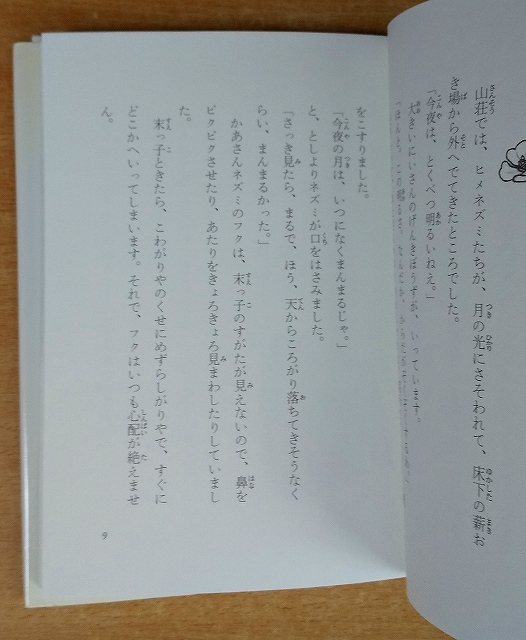 山荘では、ヒメネズミたちが、月の光にさそわれて、床下の薪お
き場から外へでてきたところでした。
「今夜は、とくべつ明るいねえ。」
大きいにいさんのげんきぼうずが、いっています。
「ほんと、この明るさ、なんだか、
をこすりました。
「今夜の月は、いつになくまんまるじゃ。」
と、としよりネズミが口をはさみました。
「さっき見たら、まるで、ほう、天からころがり落ちてきそうなく
らい、まんまるかった。」
かあさんネズミのフタは、末っ子のすがたが見えないので、鼻を
ピクピクさせたり、あたりをきょろきょろ見まわしたりしていまし
た。
末っ子ときたら、こわがりやのくせにめずらしがりやで、すぐに
どこかへいってしまいます。それで、フタはいつも心配が絶えませ
ん。
9